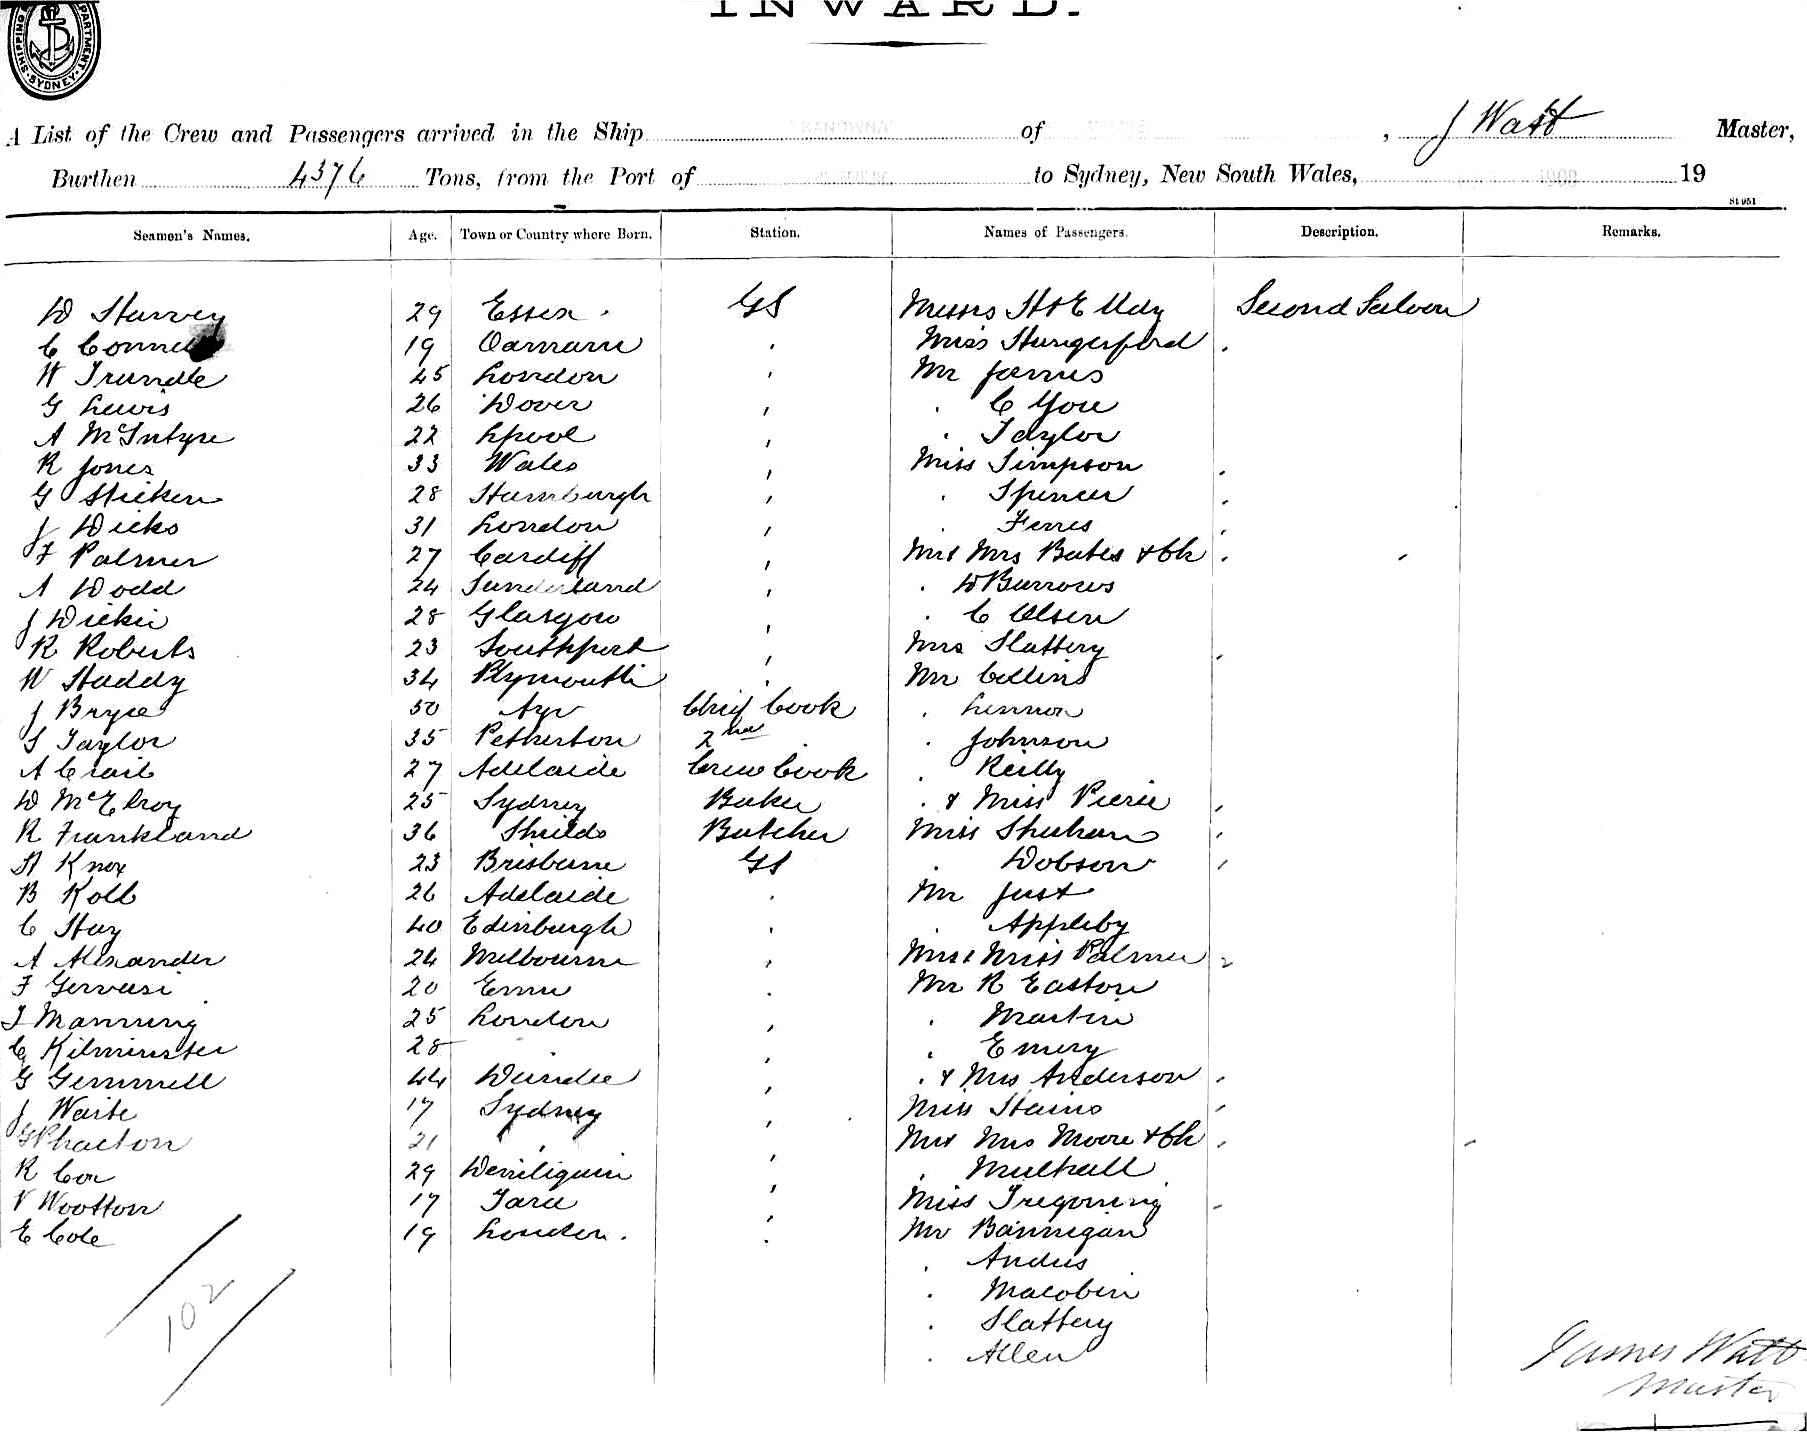 INWARD.
SHIPPING DEPARTMENT. SYDNEY
A List of the Crew and Passengers arrived in the Ship KANOWNA of , J Watt Master,
Burthen 4376 Tons, from the Port of to Sydney, New South Wales, 1908 19
St 951
Seamen's Names. Age. Town or Country where Born. Station. Names of Passengers. Description. Remarks.
W Harvey 29 Essex GS Messrs H & E Udy Second Saloon
C Connell 19 Oamaru Miss Hungerford
W Trundle 45 London Mr James
G Lewis 26 Dover C You
A McIntyre 22 Lpool Taylor
R Jones 33 Wales Miss Simpson
G Sticken 28 Hamburgh Spencer
J Wicks 31 London Ferres
F Palmer 27 Cardiff Mr & Mrs Bates & Ch
A Dodd 24 Sunderland W Burrows
J Dickie 28 Glasgow C Olsen
R Roberts 23 Southport Mrs Slattery
W Haddy 34 Plymouth Mr Collins
J Bryce 50 Ayr Chief Cook Lennon
S Taylor 35 Petherton 2nd Johnson
A Crail 27 Adelaide Crew Cook Reilly
D McElroy 25 Sydney Baker & Miss Pierie
R Frankland 36 Shields Butcher Miss Sheehan
H Knox 23 Brisbane GS Dobson
B Kolb 26 Adelaide Mr Just
C Hay 40 Edinburgh Appleby
A Alexander 24 Melbourne Mr & Miss Palmer
F Gervasi 20 Emu Mr R Easton
T Manning 25 London Martin
C Kilminster 28 Emery
G Gemmell 44 Dundee & Mrs Anderson
J Waite 17 Sydney Miss Hains
G Phaeton 21 Mr & Mrs Moore & Ch
R Cox 29 Deniliquin Mulhall
V Wootton 17 Taree Miss Tregoning
E Cole 19 London. Mr Bannigan
Andus
Macobin
102 Slattery
Allen
James Watt
Master